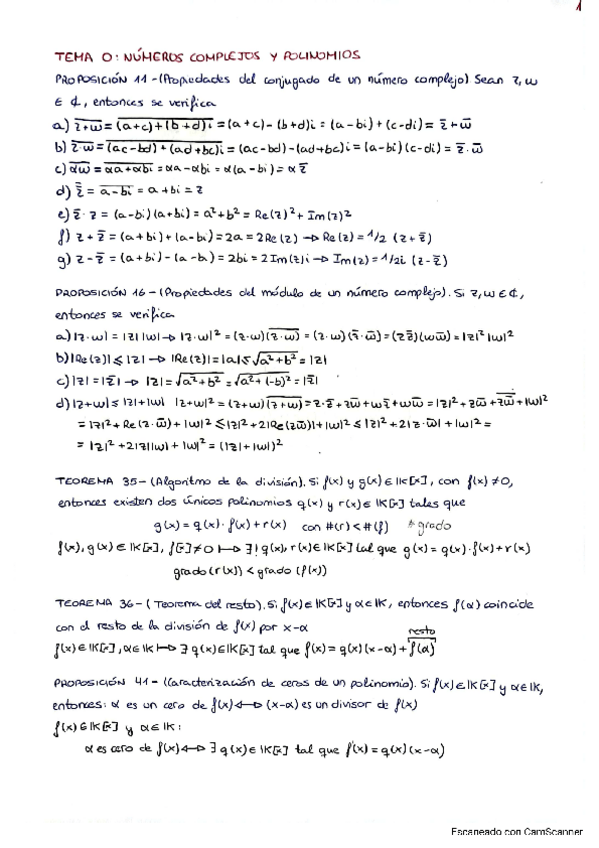 1
TEMA 0: NÚMEROS COMPLEJOS Y POLINOMIOS
PROPOSICIÓN 11 - (Propiedades del conjugado de un número complejo). Sean z, w
∈ ℂ, entonces se verifica
a) \overline{z+w} = \overline{(a+c)+(b+d)i} = (a+c)-(b+d)i = (a-bi)+(c-di) = \overline{z}+\overline{w}
b) \overline{z·w} = \overline{(ac-bd)+(ad+bc)i} = (ac-bd)-(ad+bc)i = (a-bi)(c-di) = \overline{z}·\overline{w}
c) \overline{αw} = \overline{αa+αbi} = αa-αbi = α(a-bi) = α\overline{z}
d) \overline{\overline{z}} = \overline{a-bi} = a+bi = z
e) \overline{z}·z = (a-bi)(a+bi) = a²+b² = Re(z)²+Im(z)²
f) z+\overline{z} = (a+bi)+(a-bi) = 2a = 2Re(z) → Re(z) = 1/2 (z+\overline{z})
g) z-\overline{z} = (a+bi)-(a-bi) = 2bi = 2Im(z)i → Im(z) = 1/2i (z-\overline{z})
PROPOSICIÓN 16 - (Propiedades del módulo de un número complejo). Si z, w ∈ ℂ,
entonces se verifica
a) |z·w| = |z||w| → |z·w|² = (z·w)(\overline{z·w}) = (z·w)(\overline{z}·\overline{w}) = (z\overline{z})(w\overline{w}) = |z|²|w|²
b) |Re(z)| ≤ |z| → |Re(z)| = |a| ≤ √(a²+b²) = |z|
c) |z| = |\overline{z}| → |z| = √(a²+b²) = √(a²+(-b)²) = |\overline{z}|
d) |z+w| ≤ |z|+|w| |z+w|² = (z+w)(\overline{z+w}) = z·\overline{z}+z\overline{w}+w\overline{z}+w\overline{w} = |z|²+z\overline{w}+\overline{z\overline{w}}+|w|²
= |z|²+Re(z·\overline{w})+|w|² ≤ |z|²+2|Re(z\overline{w})|+|w|² ≤ |z|²+2|z·\overline{w}|+|w|² =
= |z|²+2|z||w|+|w|² = (|z|+|w|)²
TEOREMA 35 - (Algoritmo de la división). Si f(x) y g(x) ∈ 𝕂[x], con f(x) ≠ 0,
entonces existen dos únicos polinomios q(x) y r(x) ∈ 𝕂[x] tales que
g(x) = q(x)·f(x)+r(x) con #(r) < #(f) # grado
f(x), g(x) ∈ 𝕂[x], f[x] ≠ 0 ↦ ∃! q(x), r(x) ∈ 𝕂[x] tal que g(x) = q(x)·f(x)+r(x)
grado(r(x)) < grado(f(x))
TEOREMA 36 - (Teorema del resto). Si f(x) ∈ 𝕂[x] y α ∈ 𝕂, entonces f(α) coincide
con el resto de la división de f(x) por x-α
resto
f(x) ∈ 𝕂[x], α ∈ 𝕂 ↦ ∃ q(x) ∈ 𝕂[x] tal que f(x) = q(x)(x-α)+f(α)
PROPOSICIÓN 41 - (Caracterización de ceros de un polinomio). Si f(x) ∈ 𝕂[x] y α ∈ 𝕂,
entonces: α es un cero de f(x) ↔ (x-α) es un divisor de f(x)
f(x) ∈ 𝕂[x] y α ∈ 𝕂:
α es cero de f(x) ↔ ∃ q(x) ∈ 𝕂[x] tal que f(x) = q(x)(x-α)
Escaneado con CamScanner